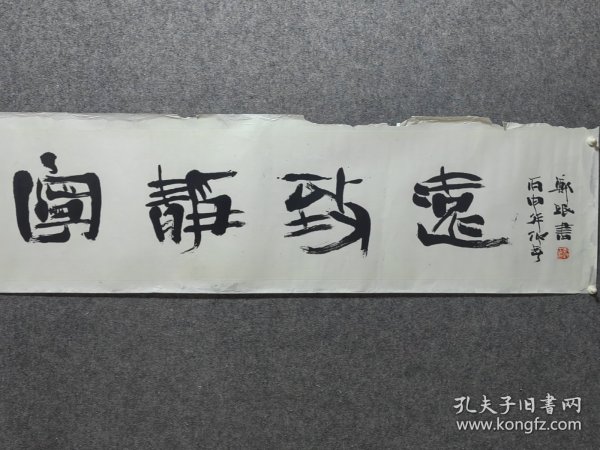 寧静致遠
丙申年作於
鄭珉書
孔夫子旧書网
www.kongfz.com